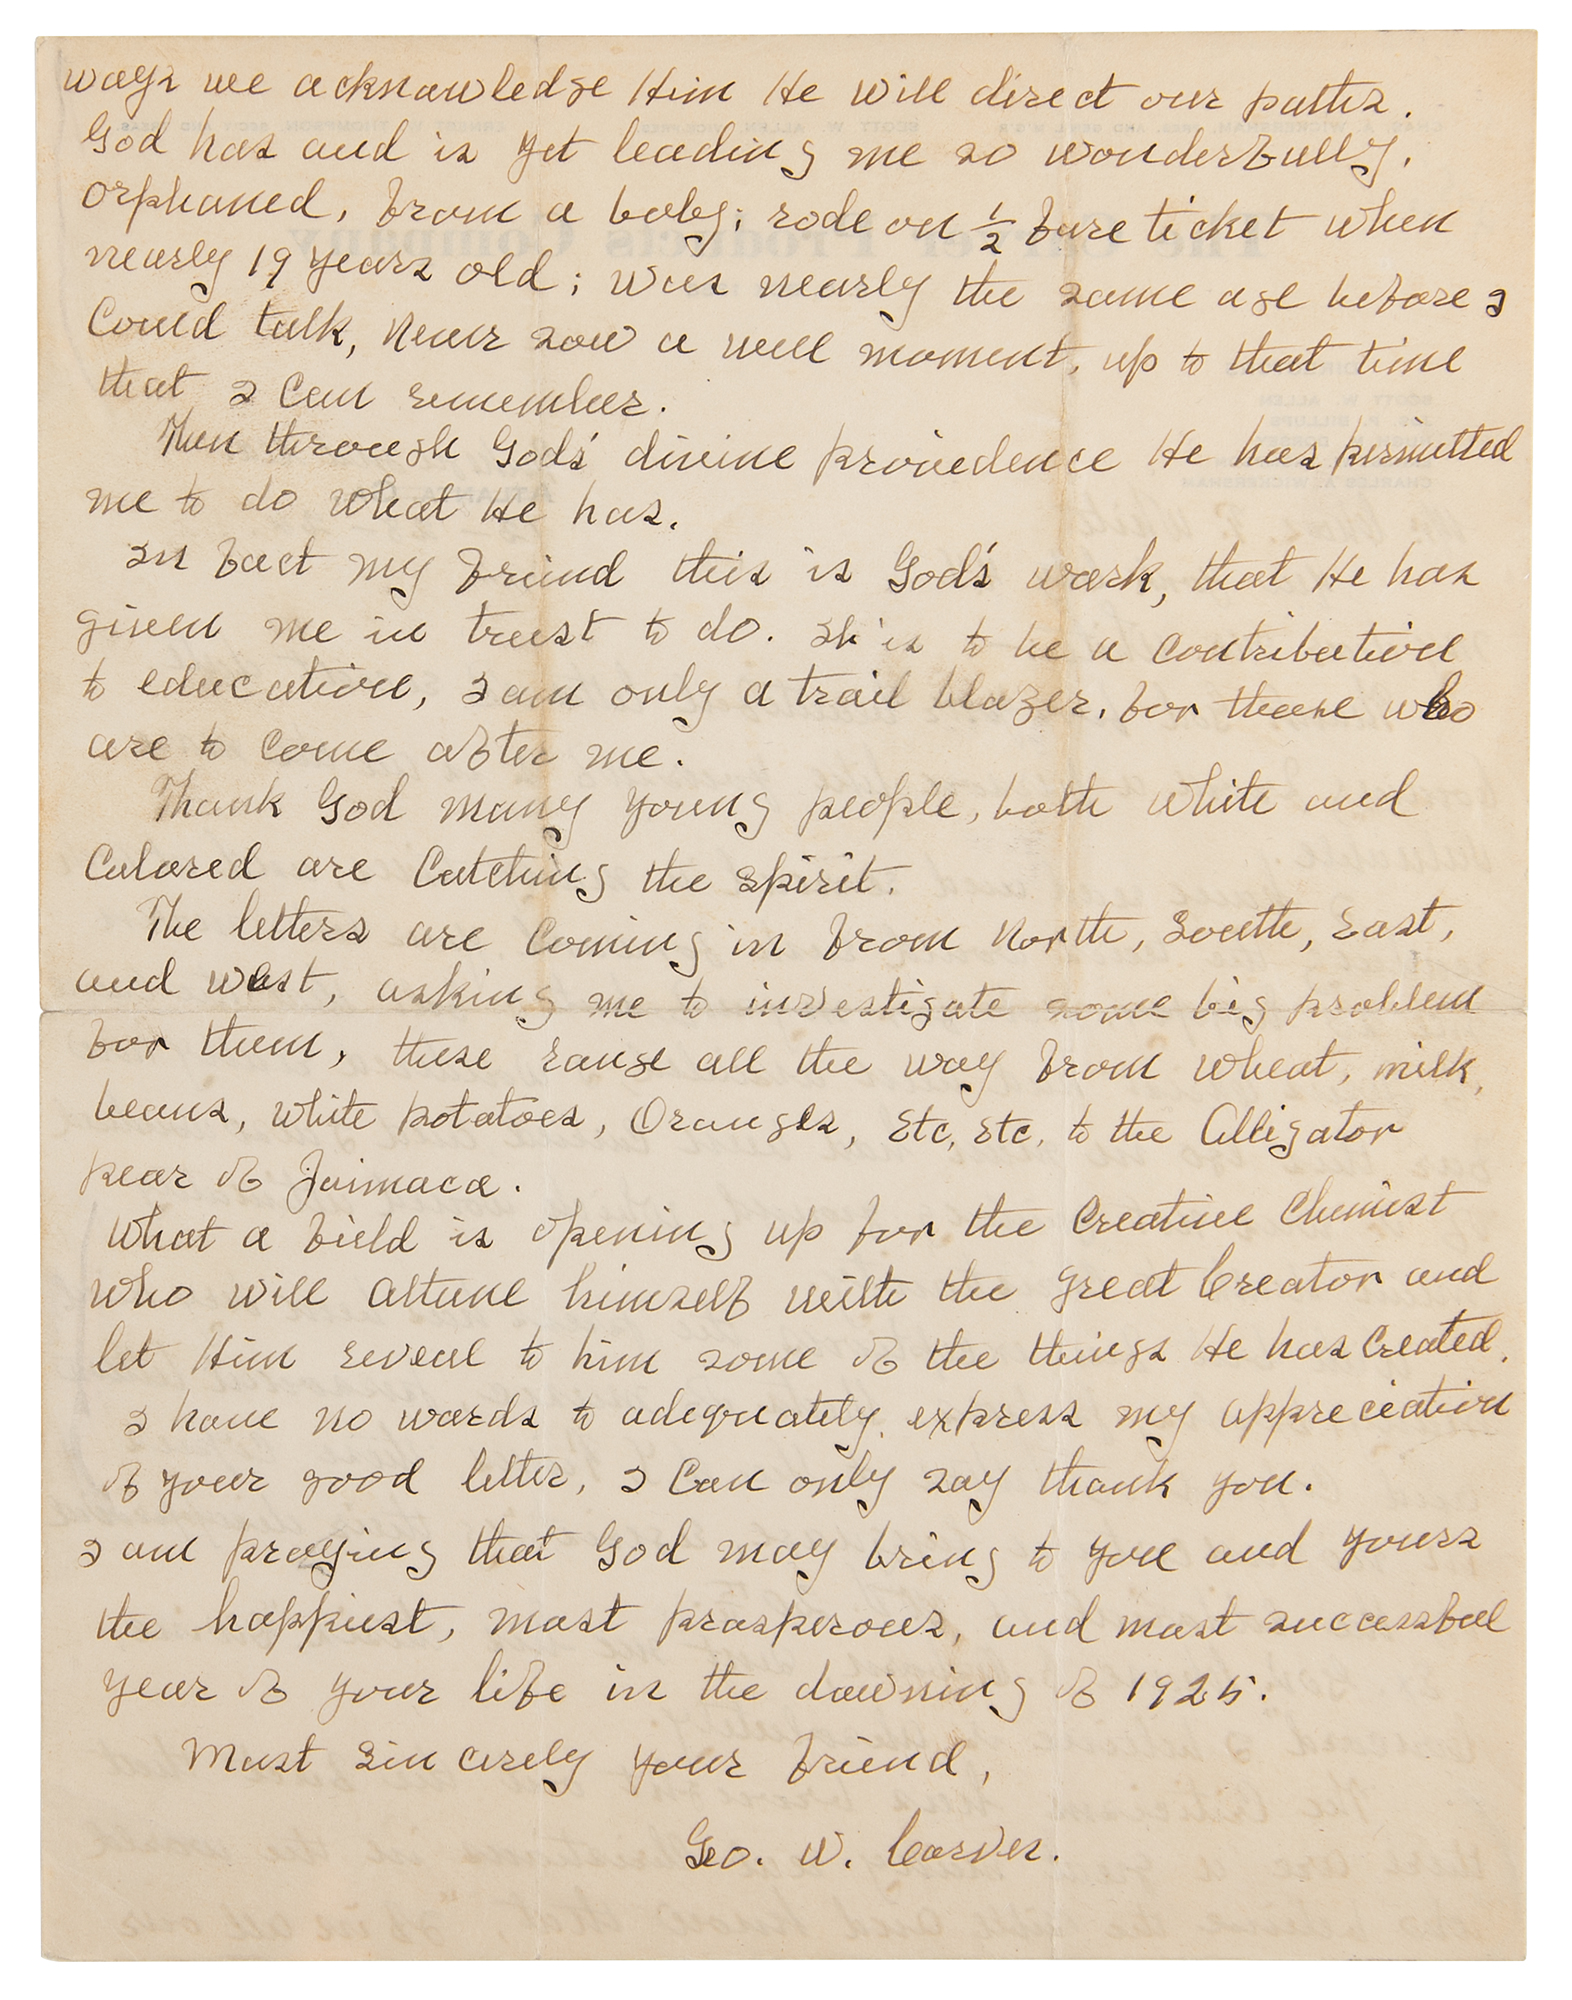 ways we acknowledge Him He will direct our paths.
God has and is yet leading me so wonderfully.
Orphaned, from a baby; rode on 1/2 fare ticket when
nearly 19 years old; was nearly the same age before I
Could talk, never saw a well moment, up to that time
that I can remember.
Then through God's divine providence He has permitted
me to do what He has.
In fact my friend this is God's work, that He has
given me in trust to do. It is to be a contribution
to education, I am only a trail blazer, for those who
are to come after me.
Thank God many young people, both white and
Colored are Catching the spirit.
The letters are Coming in from North, South, East,
and West, asking me to investigate some big problem
for them, these range all the way from wheat, milk,
beans, white potatoes, Oranges, Etc, Etc, to the Alligator
pear of Jaimaca.
What a field is opening up for the Creative Chemist
who will attune himself with the great Creator and
let Him reveal to him some of the things He has Created.
I have no words to adequately express my appreciation
of your good letter, I Can only say thank you.
I am praying that God may bring to you and yours
the happiest, most prosperous, and most successful
year of your life in the dawning of 1925.
Most Sincerely your friend,
Geo. W. Carver.